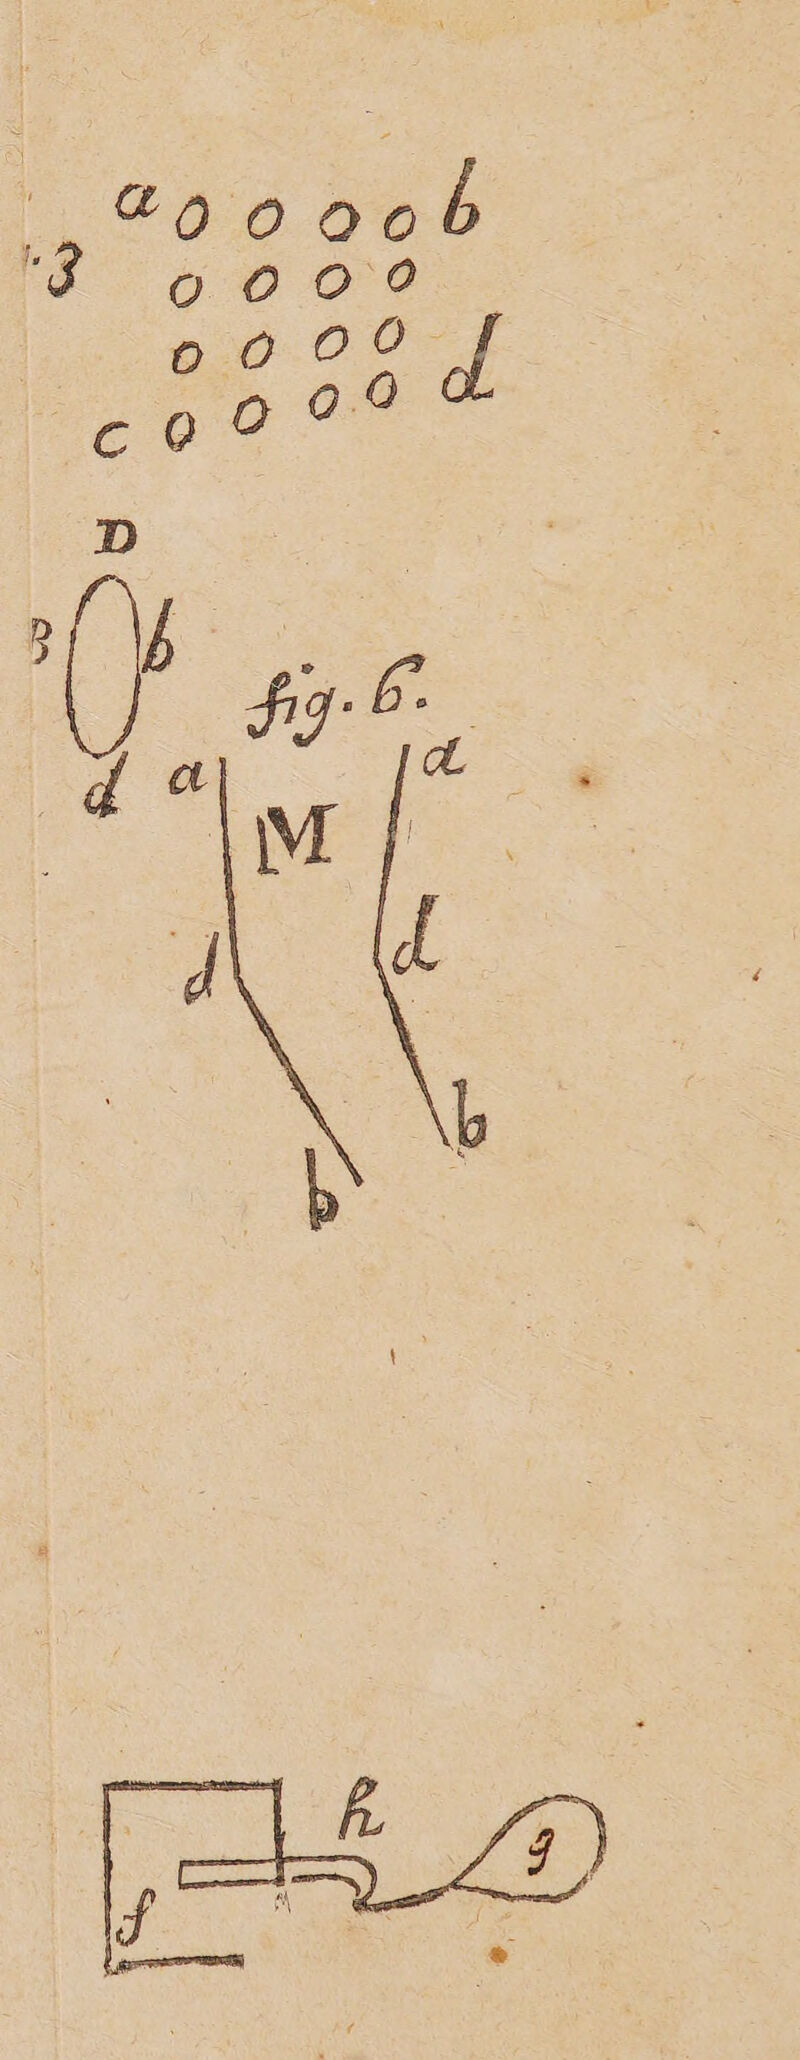 a b
3
c d
D
b
fig. 6.
d a a
M
d d
b
b
h
g
f